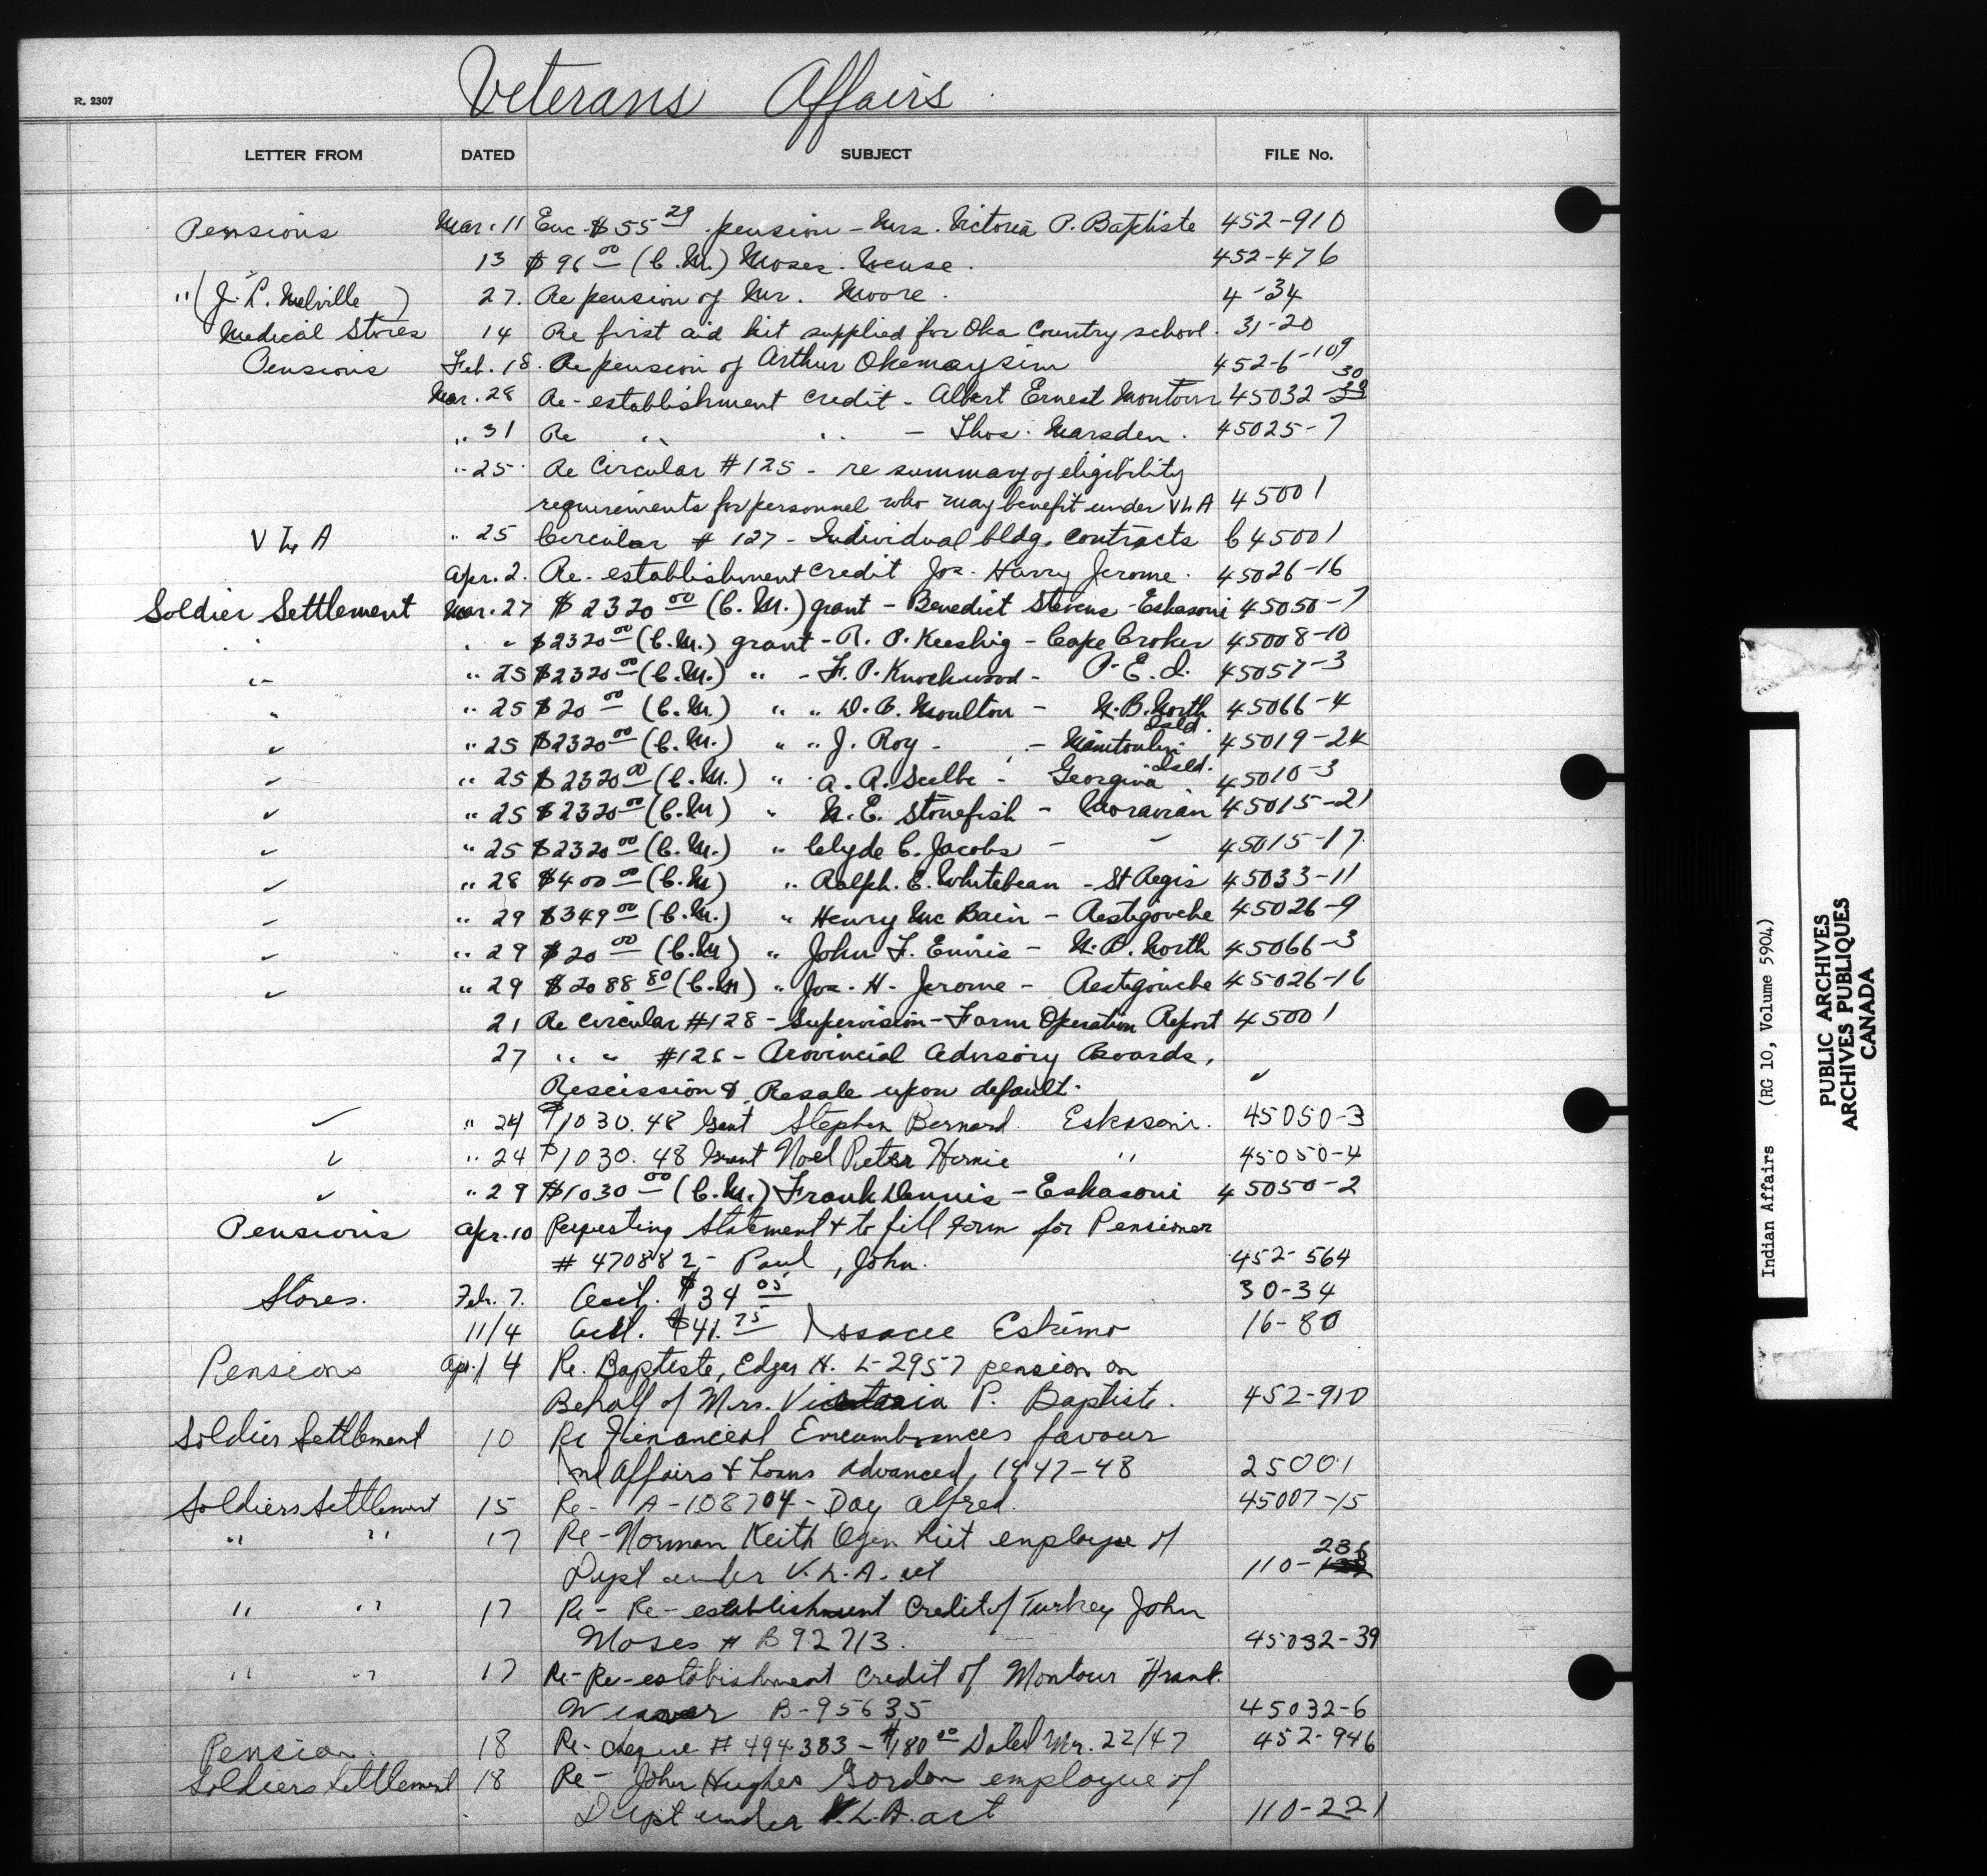 Veterans Affairs
R. 2307
LETTER FROM DATED SUBJECT FILE No.
Pensions Mar. 11 Enc. $55 29 pension - Mrs. Victoria P. Baptiste 452-910
13 $96 00 (C.M.) Moses 452-476
" (J. L. Melville) 27. Re pension of Mr. Moore. 4-34
Medical Stores 14 Re first aid kit supplied for Oka Country school. 31-20
Pensions Feb. 18. Re pension of Arthur Okemaysim 452-6-109
Mar. 28 Re-establishment credit - Albert Ernest Montour 45032-30
" 31 Re " " - Thos. Marsden. 45025-7
" 25. Re Circular #125 - re summary of eligibility
requirements for personnel who may benefit under VLA 45001
V L A " 25 Circular # 127 - Individual bldg. contracts C45001
Apr. 2. Re-establishment credit Jos. Harry Jerome. 45026-16
Soldier Settlement Mar. 27 $2320 00 (C.M.) grant - Benedict Stevens - Eskasoni 45050-7
" " $2320 00 (C.M.) grant - R. P. Keeshig - Cape Croker 45008-10
" " 25 $2320 00 (C.M.) " - F. P. Knockwood - P.E.I. 45057-3
" " 25 $20 00 (C.M.) " " D. C. Moulton - N.B. North 45066-4
" " 25 $2320 00 (C.M.) " " J. Roy - Manitoulin Isld. 45019-24
" " 25 $2320 00 (C.M.) " A. R. - Georgina Isld. 45010-3
" " 25 $2320 00 (C.M) " N. E. Stonefish - Moravian 45015-21
" " 25 $2320 00 (C.M.) " Clyde C. Jacobs - " 45015-17.
" " 28 $400 00 (C.M) " Ralph. E. Whitebean - St Regis 45033-11
" " 29 $349 00 (C.M.) " Henry Mc Bain - Restigouche 45026-9
" " 29 $20 00 (C.M) " John F. Ennis - N.B. North 45066-3
" " 29 $2088 80 (C.M) " Jos. H. Jerome - Restigouche 45026-16
21 Re circular #128 - Supervision - Farm Operation Report 45001
27 " " #126 - Provincial Advisory Boards,
Rescission & Resale upon default. "
" " 24 $1030.48 Grant Stephen Bernard Eskasoni. 45050-3
" " 24 $1030.48 Grant Noel Peter Hernie " 45050-4
" " 29 $1030 00 (C.M.) Frank Dennis - Eskasoni 45050-2
Pensions Apr. 10 Requesting Statement & to fill form for Pensioner
# 470882 - Paul, John. 452-564
Stores. Feb. 7. Acct. $34 05 30-34
11/4 Acct. $41. 75 Issacee Eskimo 16-80
Pensions Apr. 14 Re. Baptiste, Edgar H. L-2957 pension on
Behalf of Mrs. Victoria P. Baptiste. 452-910
Soldier Settlement 10 Re Financial Encumbrances favour
Ind Affairs & Loans advanced, 1947-48 25001
Soldiers Settlement 15 Re- A-108704 - Day Alfred. 45007-15
" " 17 Re- Norman Keith employee of
Dept under V.L.A. act 110-236
" " 17 Re- Re-establishment Credit of Turkey John
Moses # B92713. 45032-39
" " 17 Re- Re-estabishment Credit of Montour Frank
B-95635 45032-6
Pension. 18 Re- cheque # 494383 - $180 00 Dated Mr. 22/47 452-946
Soldiers Settlement 18 Re- John Hughes Gordon employee of
Dept under V.L.A. act 110-221
Indian Affairs (RG 10, Volume 5904)
PUBLIC ARCHIVES
ARCHIVES PUBLIQUES
CANADA